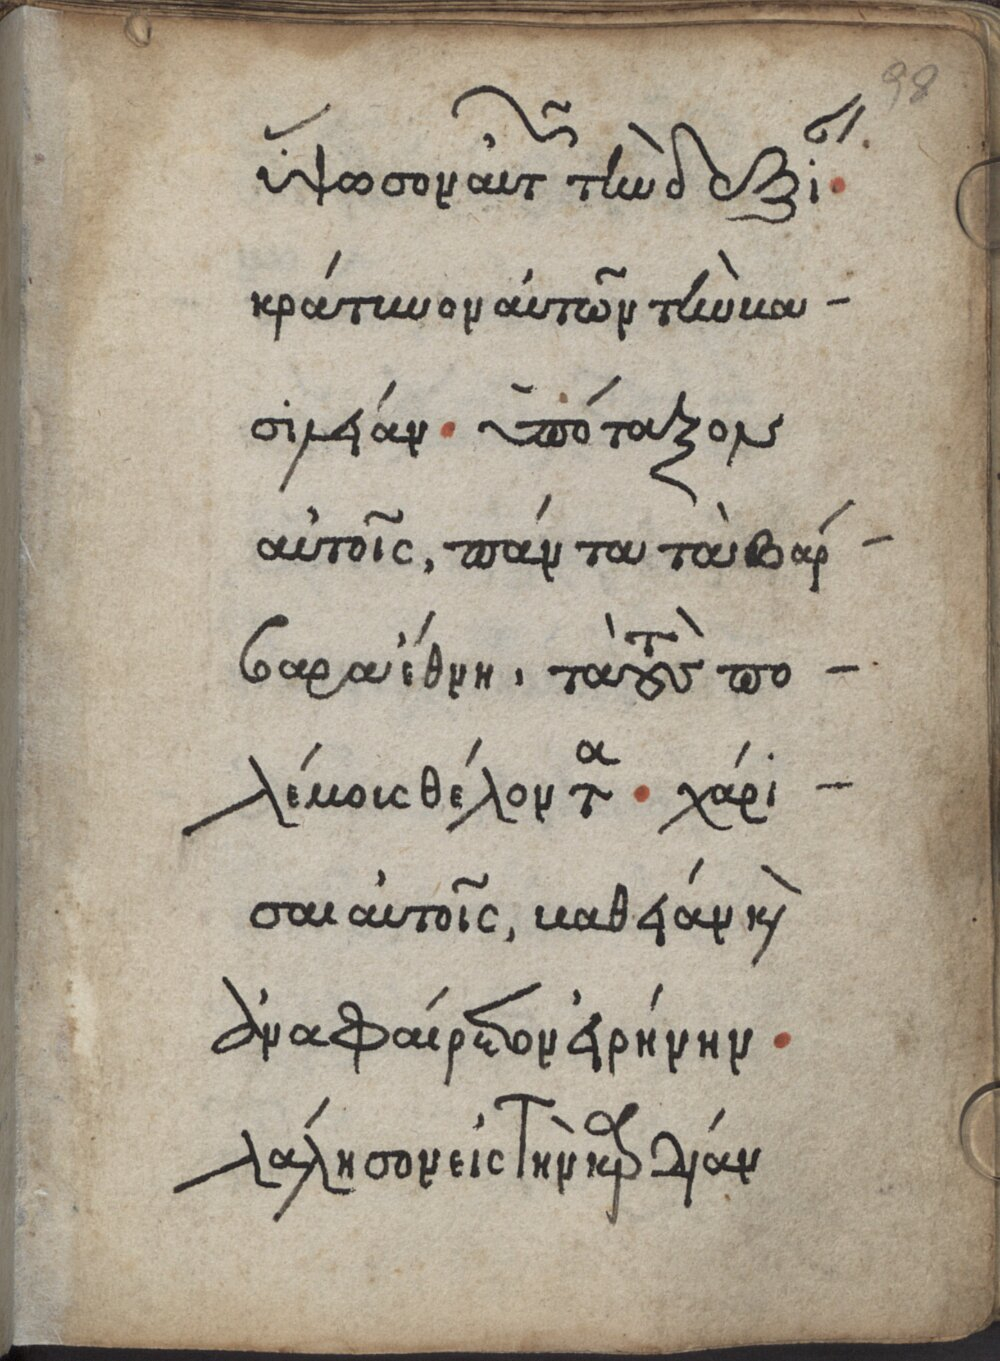 98
ὕψωσον αὐτῶν τὴν δεξιάν·
κράτυνον αὐτῶν τὴν βα-
σιλείαν· ὑπόταξον
αὐτοῖς, πάντα τὰ βάρ-
βαρα ἔθνη, τὰ τοὺς πο-
λέμους θέλοντα· χάρι-
σαι αὐτοῖς, βαθεῖαν καὶ
ἀναφαίρετον εἰρήνην·
λάλησον εἰς τὴν καρδίαν